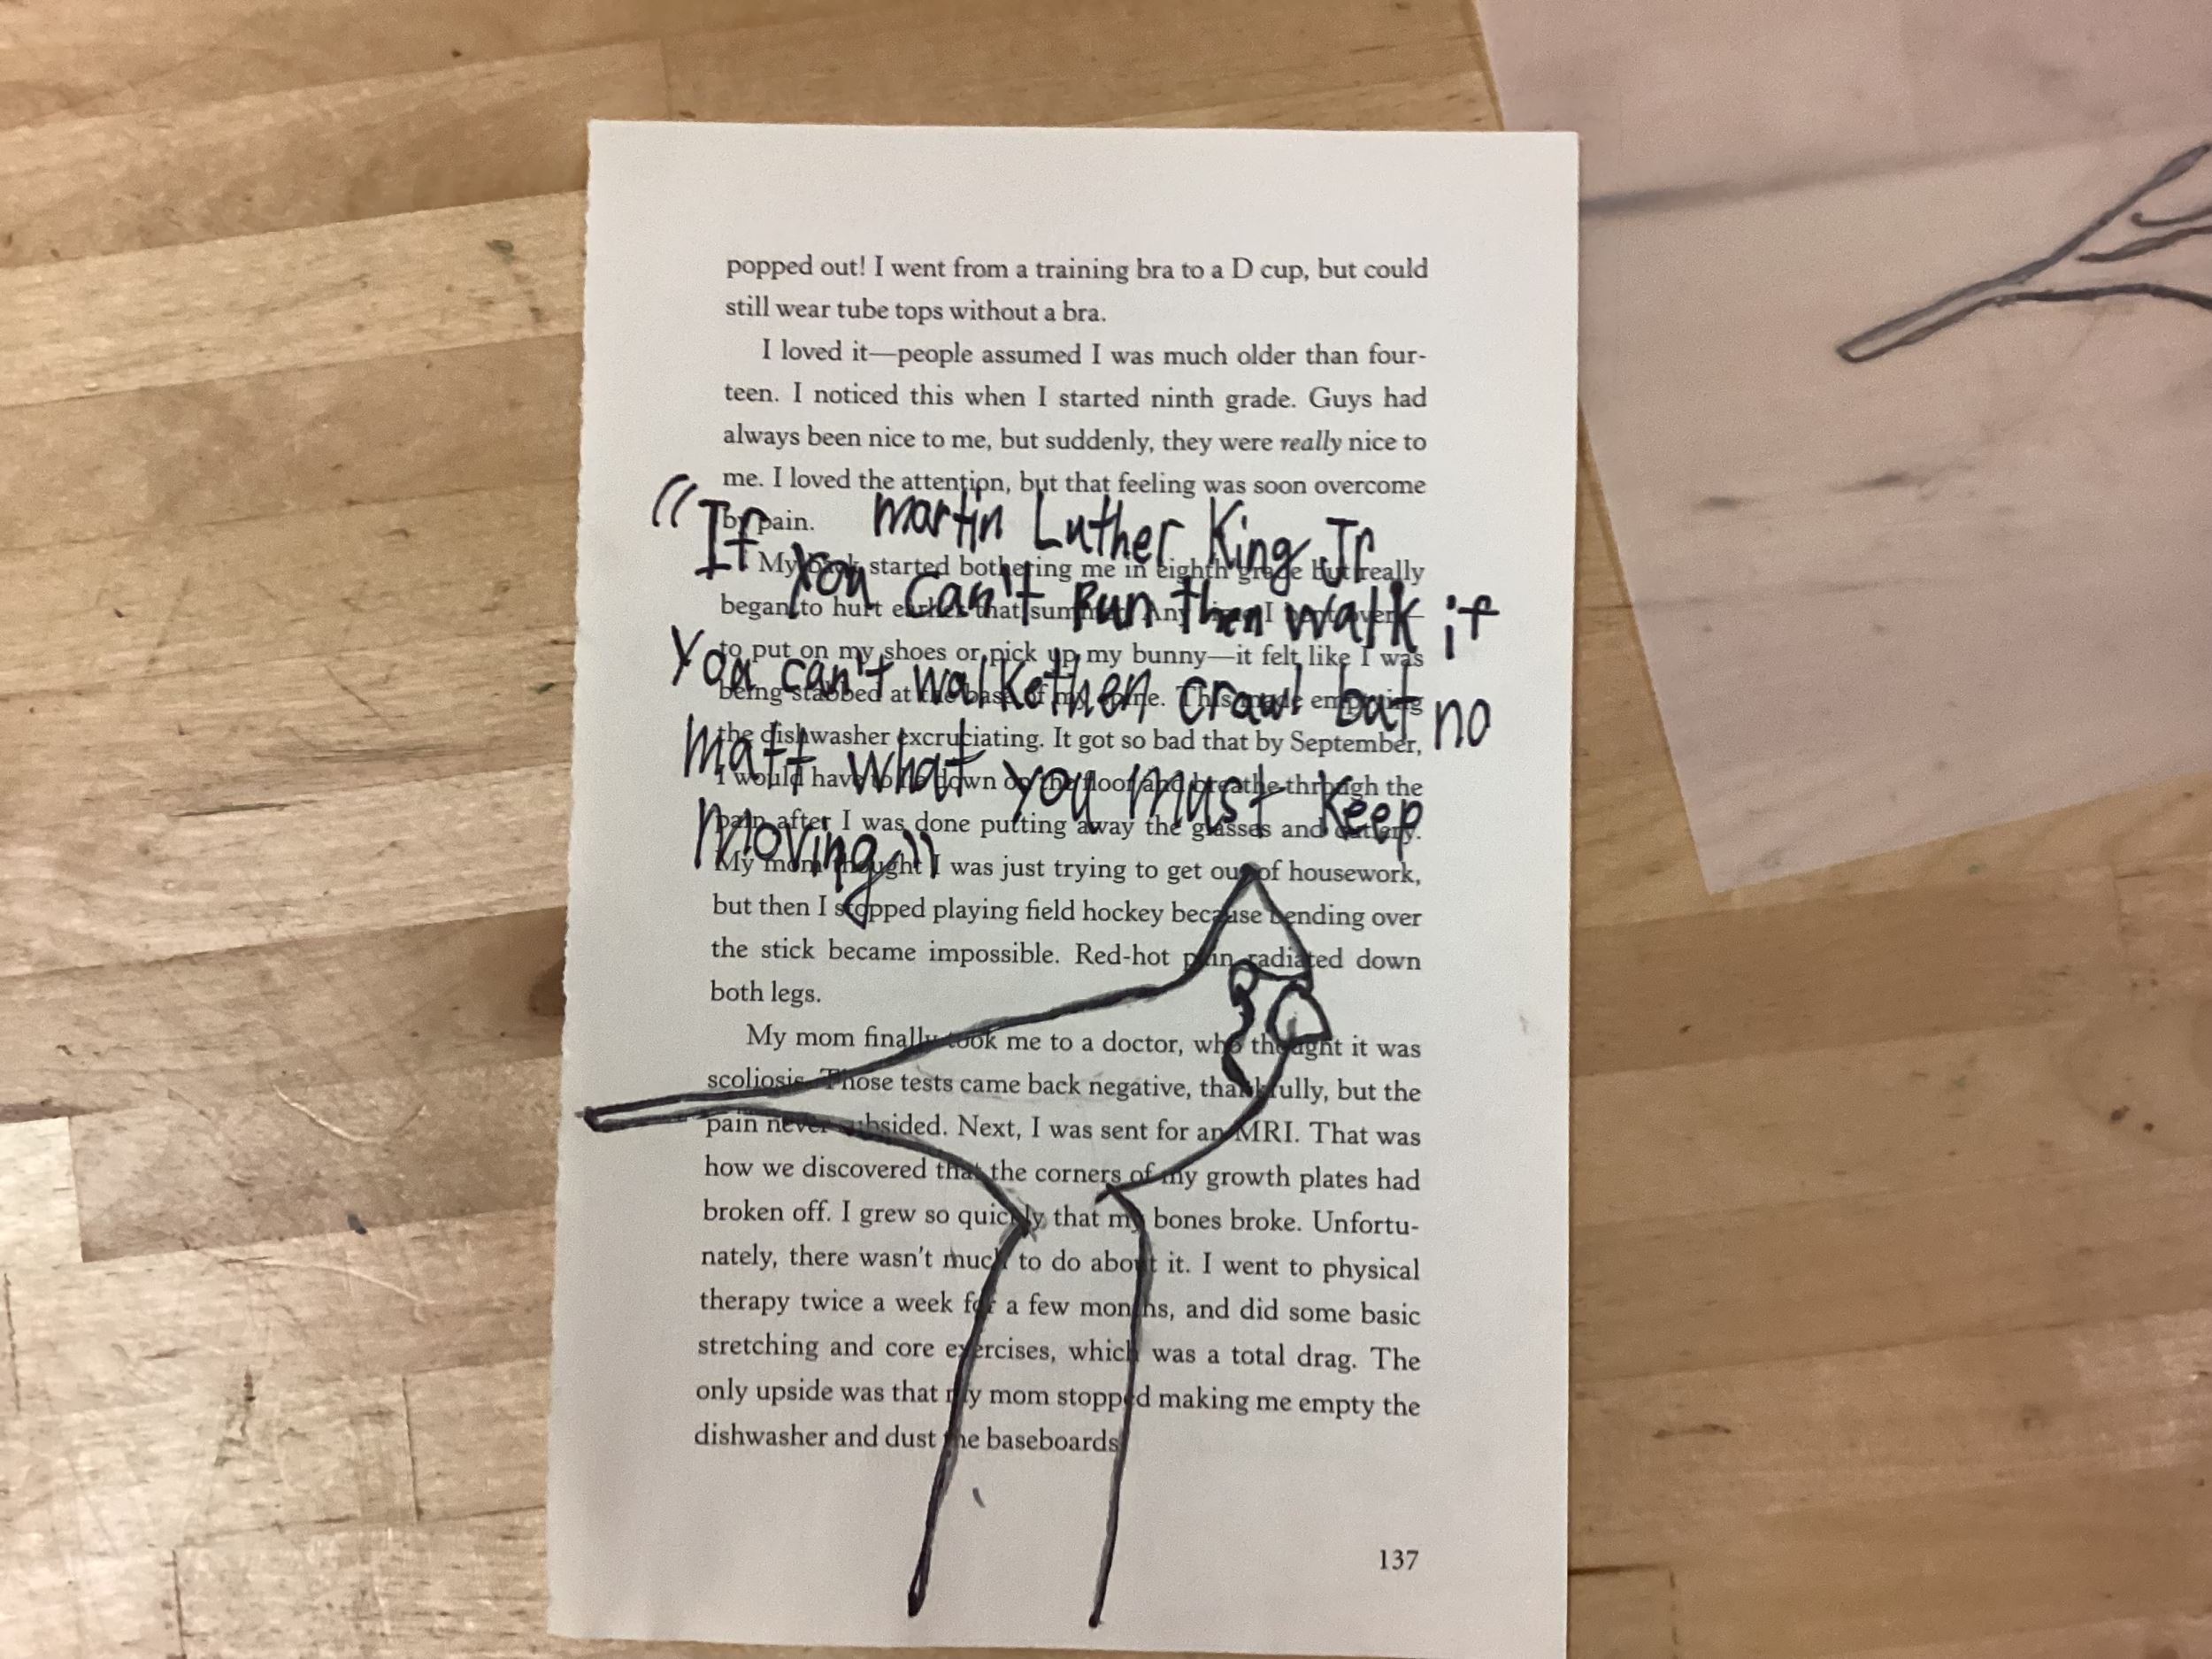 popped out! I went from a training bra to a D cup, but could
still wear tube tops without a bra.
I loved it—people assumed I was much older than four-
teen. I noticed this when I started ninth grade. Guys had
always been nice to me, but suddenly, they were really nice to
me. I loved the attention, but that feeling was soon overcome
by pain.
martin Luther King Jr
"If you can't Run then walk if
You can't walk then crawl but no
matt what you must keep
moving"
My back started bothering me in eighth grade but really
began to hurt earlier that summer. Any I over—
to put on my shoes or pick up my bunny—it felt like I was
being stabbed at the base of my spine. This made emptying
the dishwasher excruciating. It got so bad that by September,
I would have to lie down on the floor and breathe through the
pain after I was done putting away the glasses and cutlery.
My mom thought I was just trying to get out of housework,
but then I stopped playing field hockey because bending over
the stick became impossible. Red-hot pain radiated down
both legs.
My mom finally took me to a doctor, who thought it was
scoliosis. Those tests came back negative, thankfully, but the
pain never subsided. Next, I was sent for an MRI. That was
how we discovered that the corners of my growth plates had
broken off. I grew so quickly that my bones broke. Unfortu-
nately, there wasn't much to do about it. I went to physical
therapy twice a week for a few months, and did some basic
stretching and core exercises, which was a total drag. The
only upside was that my mom stopped making me empty the
dishwasher and dust the baseboards.
137